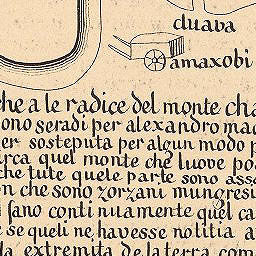 duava
amaxobi
che a le radice del monte cha
ono seradi per alexandro mac
er sosteputa per algun modo p
arca quel monte che luove po
che tute quele parte sono asse
n che sono zorzani mungresi
i fano continuamente quel ca
e se queli ne havesse notitia a
la extremita de la terra com